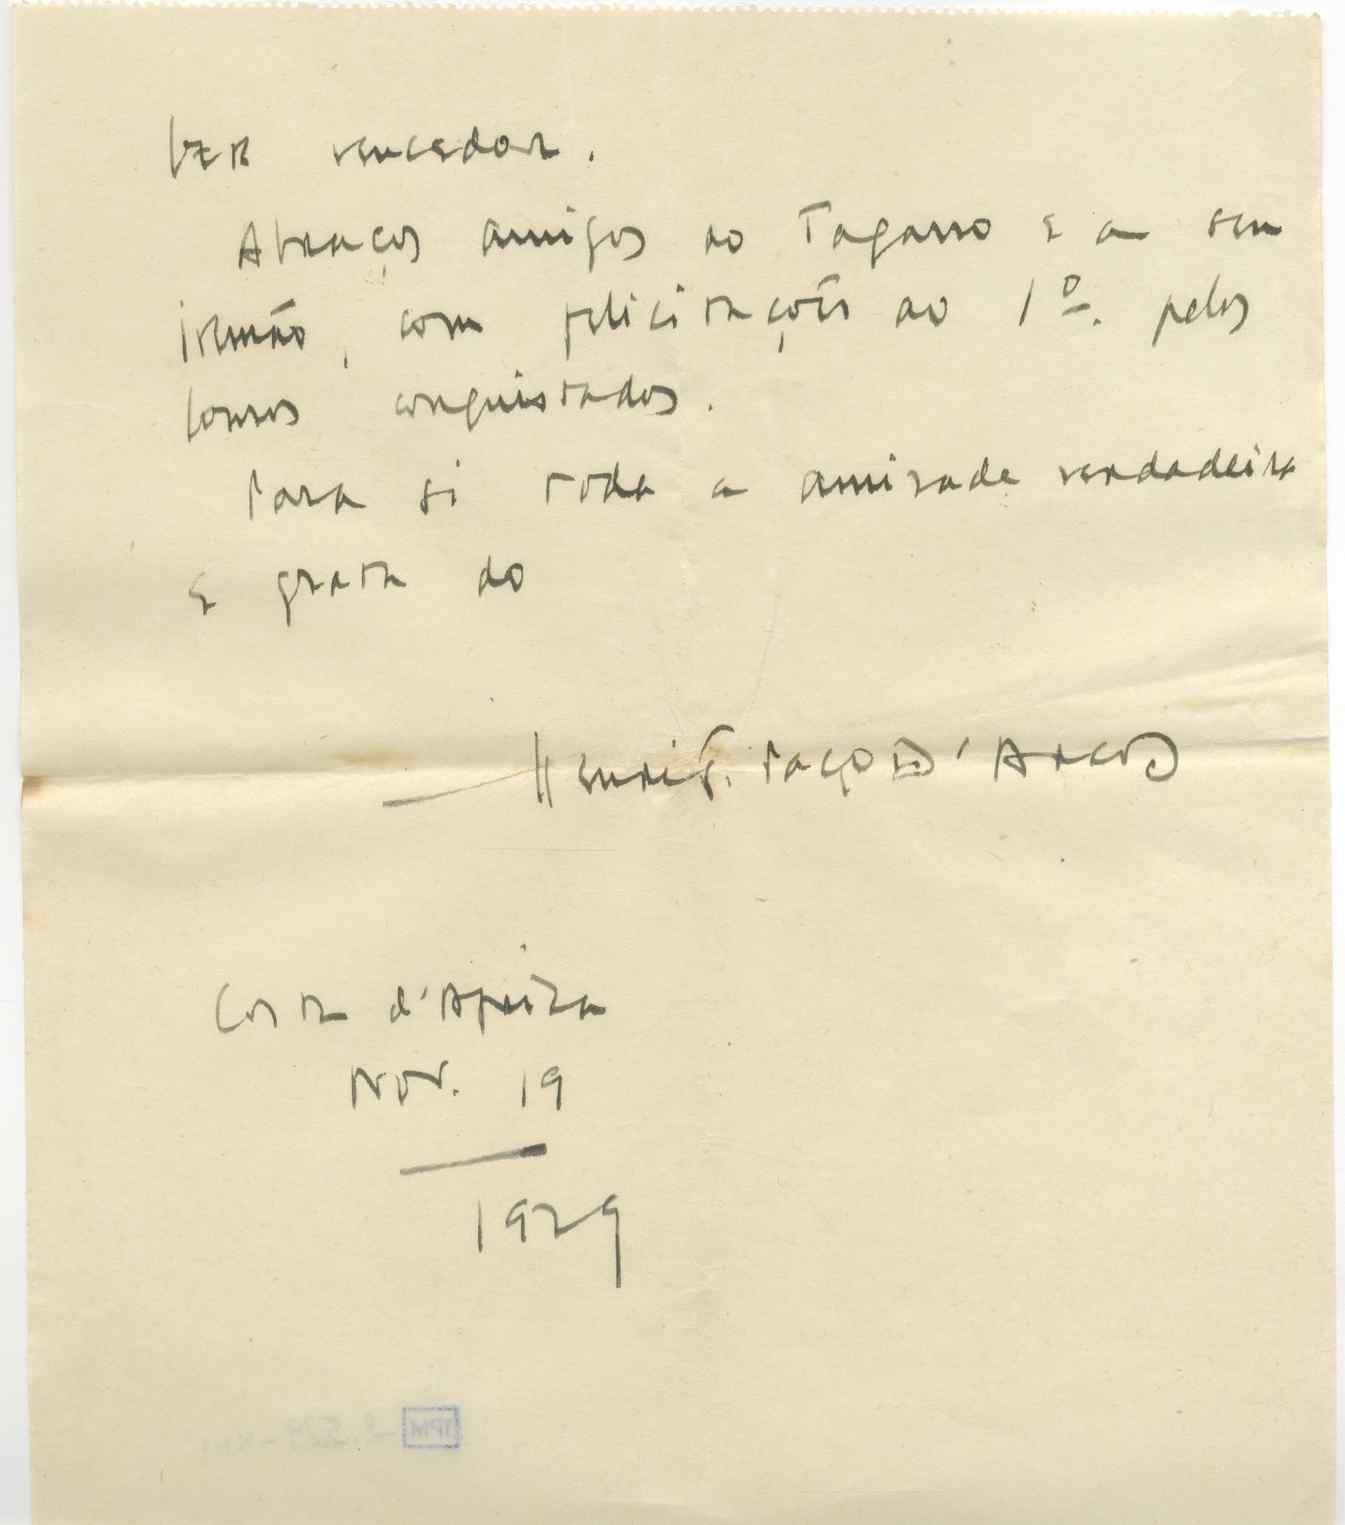 ver vencedor.
Abraços amigos ao Tagarro e a seu
irmão, com felicitações ao 1º. pelos
louros conquistados.
Para si toda a amizade verdadeira
e grata do
Henriq. Paço D'Arcos
Costa d'Africa
Nov. 19
1929
IPM